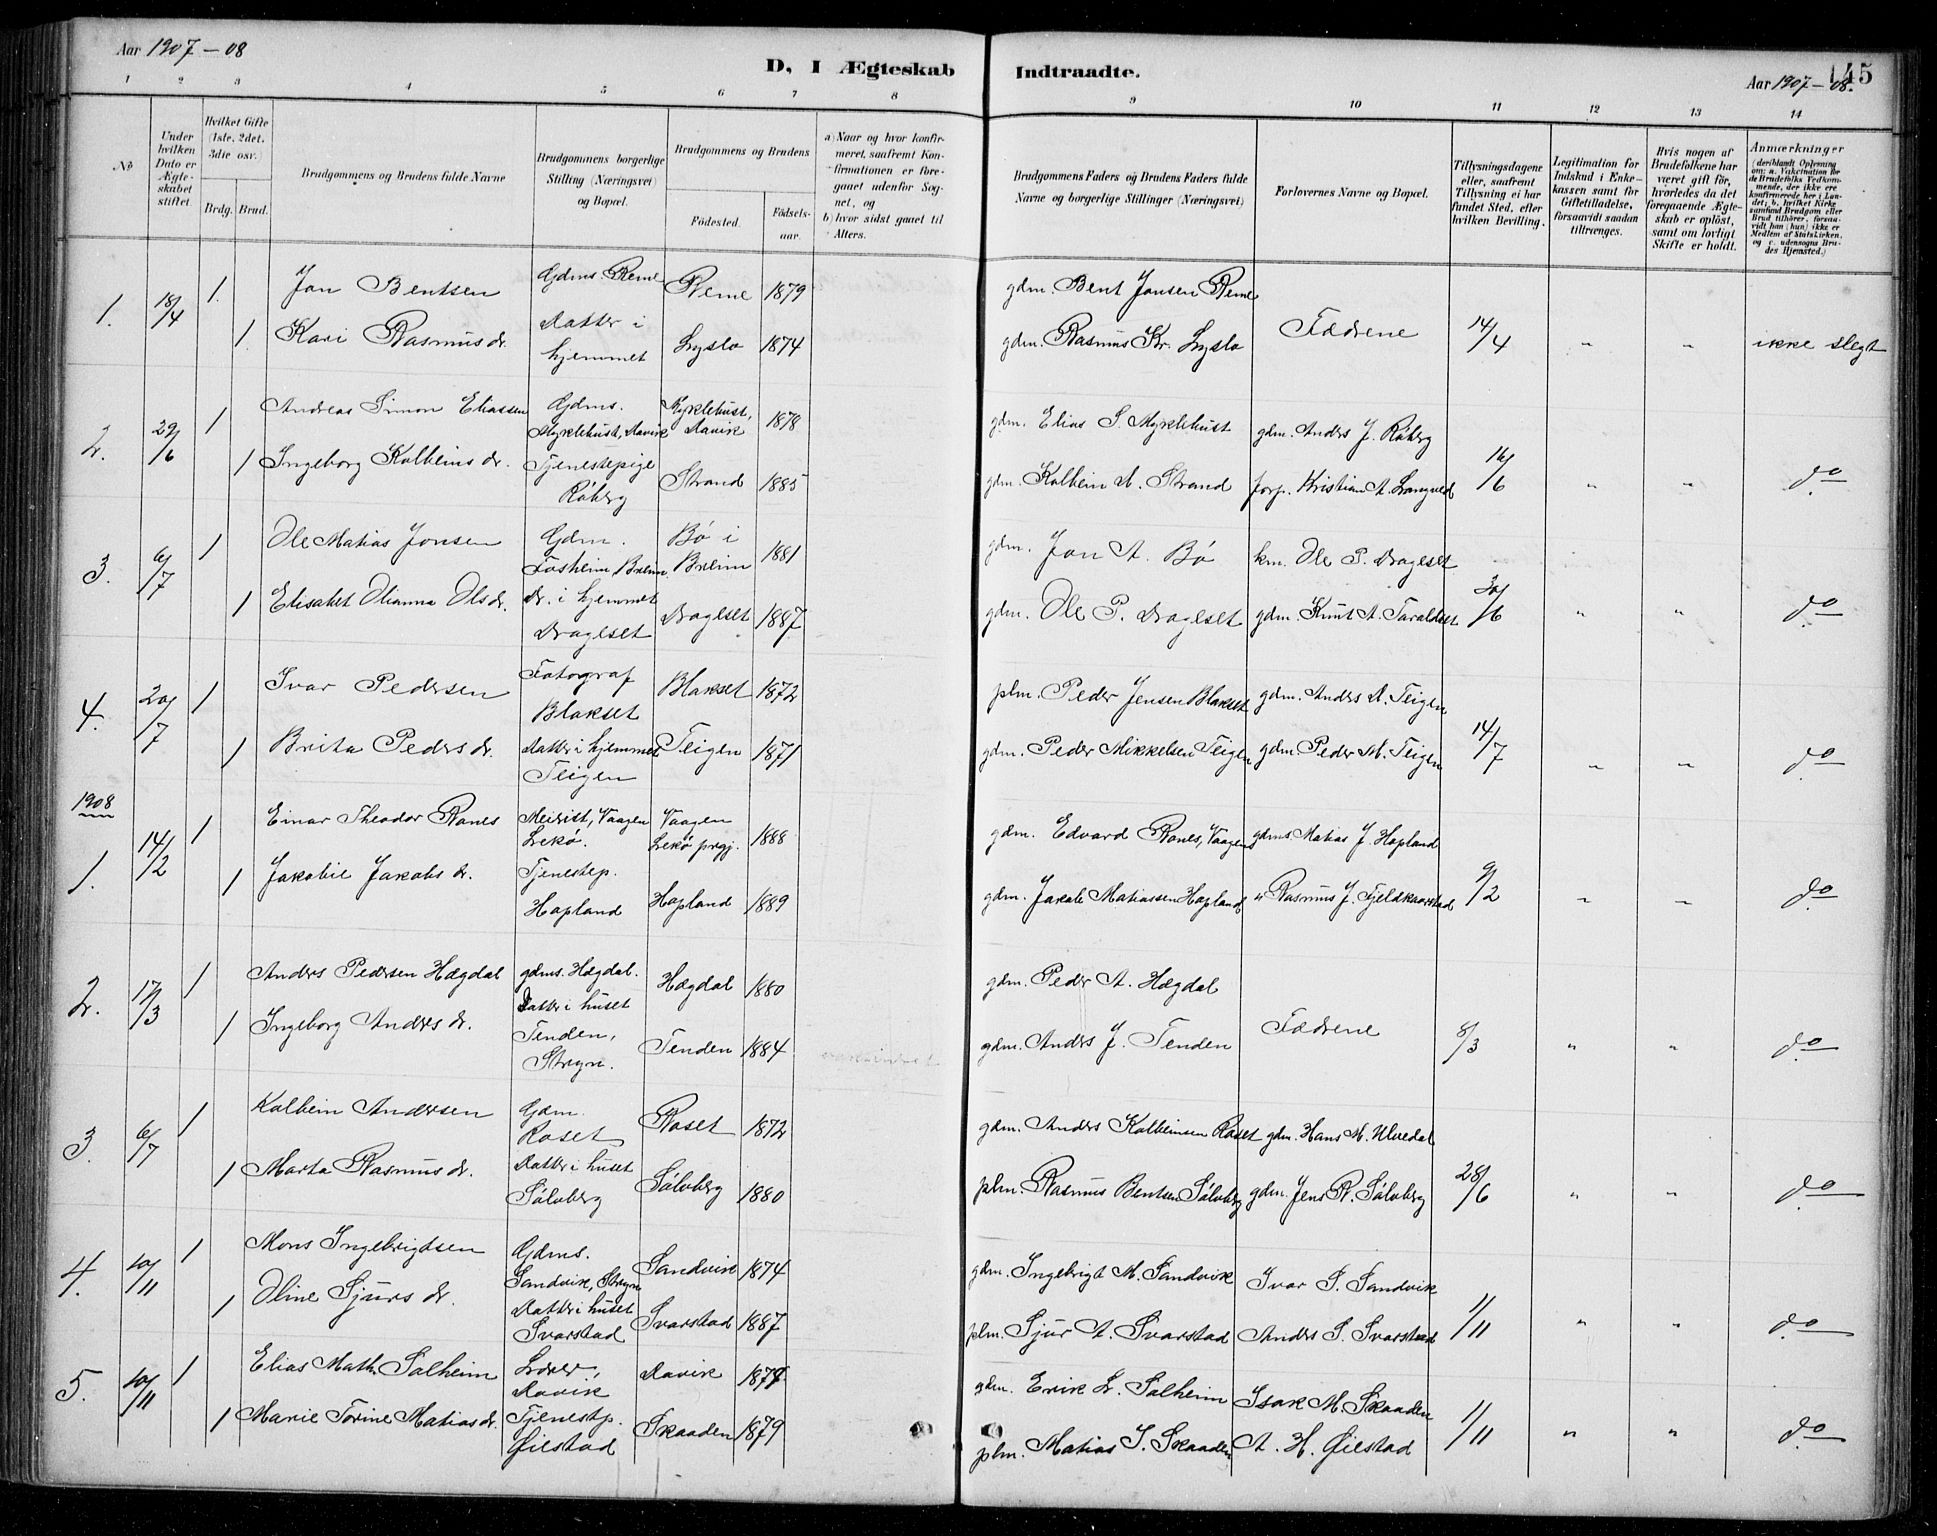 Aar 1907–08
D, I Ægteskab Indtraadte.
Aar 1907–08.
145
1 2 3 4 5 6 7 8 9 10 11 12 13 14
№
Under hvilken Dato er Ægteskabet stiftet.
Hvilket Gifte (1ste, 2det, 3die osv.)
Brdg. Brud.
Brudgommens og Brudens fulde Navne
Brudgommens borgerlige Stilling (Næringsvei) og Bopæl.
Brudgommens og Brudens
Fødested. Fødselsaar.
a) Naar og hvor konfirmeret, saafremt Konfirmationen er foregaaet udenfor Sognet, og
b) hvor sidst gaaet til Alters.
Brudgommens Faders og Brudens Faders fulde Navne og borgerlige Stillinger (Næringsvei)
Forlovernes Navne og Bopæl.
Tillysningsdagene eller, saafremt Tillysning ei har fundet Sted, efter hvilken Bevilling.
Legitimation for Indskud i Enkekassen samt for Giftetilladelse, forsaavidt saadan tiltrænges.
Hvis nogen af Brudefolkene har været gift før, hvorledes da det foregaaende Ægteskab er opløst, samt om lovligt Skifte er holdt.
Anmærkninger
(deriblandt Oplysning om: a. Vakcination for de Brudefolks Vedkommende, der ikke ere konfirmerede her i Landet; b. hvilket Kirkesamfund Brudgom eller Brud tilhører, forsaavidt han (hun) ikke er Medlem af Statskirken, og c. udensogns Brudes Hjemsted.)
1. 18/4 1. Jon Bentsen Gdms. Reme Reme 1879 gdm. Bent Jonsen Reme
1. Kari Rasmusdr. Datter i hjemmet Lyslo 1874 gdm. Rasmus Kr. Lyslo Fædrene 14/4 " " ikke slegt
2. 29/6 1 Andreas Simon Eliassen Gdms. Myklebust, Davik Myklebust, Davik 1878 gdm. Elias S. Myklebust gdm. Anders J. Råberg
1 Ingeborg Kolbeinsdr. Tjenestepige Råberg Strand 1885 gdm. Kolbein A. Strand forp. Kristian A. Langeld 16/6 " " do
3. 6/7 1 Ole Matias Jonsen Gdm. Fosheim, Breim Bø i Breim 1881 gdm. Jon A. Bø km. Ole P. Drageset
1 Elisabet Olianna Olsdr. Dr. i hjemmet Drageset Drageset 1887 gdm. Ole P. Drageset gdm. Knut A. Taraldset 30/6 " " do
4. 20/7 1 Ivar Pedersen Fotograf Blakset Blakset 1872 plm. Peder Jensen Blakset gdm. Anders A. Teigen
1 Brita Pedersdr. Datter i hjemmet Teigen Teigen 1871 gdm. Peder Mikkelsen Teigen gdm. Peder M. Teigen 14/7 " " do
1908
1. 14/2 1 Einar Theodor Ranes Meierist, Vaagen Lekø. Vaagen Lekø prgj. 1888 gdm. Edvard Ranes, Vaagen gdms. Matias J. Hopland
1 Jakobie Jakobsdr. Tjenestep. Hopland Hopland 1889 gdm. Jakob Matiassen Hopland " Rasmus J. Fjeldkaarstad 9/2 " " do
2. 17/3 1 Anders Pedersen Hægdal gdms. Hægdal. Hægdal 1880 gdm. Peder A. Hægdal
1 Ingeborg Andersdr. Datter i huset Tenden, Stryn. Tenden 1884 gdm. Anders J. Tenden Fædrene 8/3 " " do
3. 6/7 1 Kolbein Andersen Gdm. Roset Roset 1872 gdm. Anders Kolbeinsen Roset gdm. Hans M. Ulvedal
1 Marta Rasmusdr. Datter i huset Sølvberg Sølvberg 1880 plm. Rasmus Bentsen Sølvberg gdm. Jens R. Sølvberg 28/6 " " do
4. 10/11 1 Mons Ingebrigtsen Gdms. Sandvik, Stryn Sandvik 1874 gdm. Ingebrigt M. Sandvik Ivar I. Sandvik
1 Oline Sjursdr. Datter i huset Svarstad Svarstad 1887 plm. Sjur A. Svarstad Anders S. Svarstad 1/11 " " do
5. 10/11 1 Elias Math. Solheim Lærer, Davik Davik gdm. Erik L. Solheim Isak M. Skaaden
1 Marie Torine Matiasdr. Tjenestp. Øilstad Skaaden 1879 plm. Matias I. Skaaden A. H. Øilstad 1/11 " " do